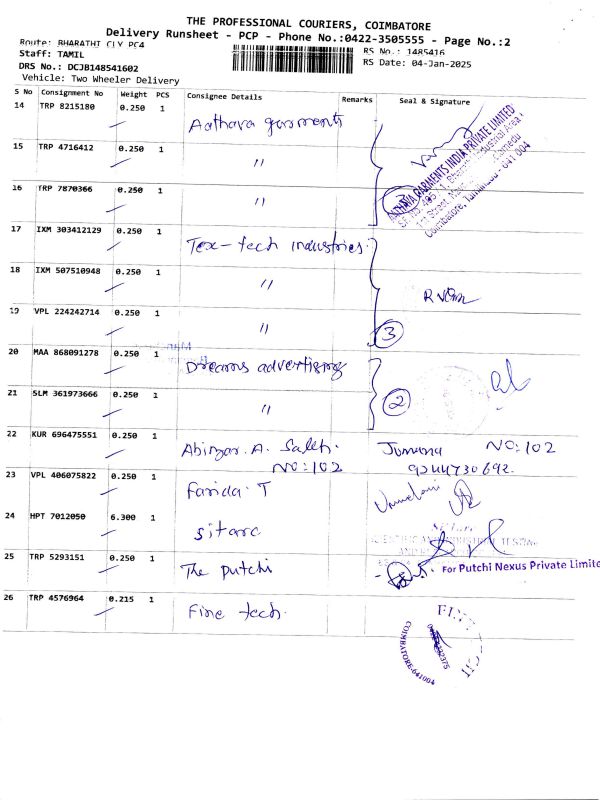 THE PROFESSIONAL COURIERS, COIMBATORE
Delivery Runsheet - PCP - Phone No.:0422-3505555 - Page No.:2
Route: BHARATHI CLY PC4
Staff: TAMIL
RS No.: 1485416
DRS No.: DCJB148541602
RS Date: 04-Jan-2025
Vehicle: Two Wheeler Delivery
S No Consignment No Weight PCS Consignee Details Remarks Seal & Signature
14 TRP 8215180 0.250 1 Aathava garments
15 TRP 4716412 0.250 1 "
16 TRP 7870366 0.250 1 " 3
AATHAVA GARMENTS INDIA PRIVATE LIMITED
Coimbatore, Tamilnadu - 641 004
17 IXM 303412129 0.250 1 Tex-tech industries.
18 IXM 507510948 0.250 1 "
19 VPL 224242714 0.250 1 " 3
20 MAA 868091278 0.250 1 Dreams advertising
21 SLM 361973666 0.250 1 " 2
22 KUR 696475551 0.250 1 Abinzar. A. Saleh. NO:102 Jumana NO:102
9244730692.
23 VPL 406075822 0.250 1 Farida. T
24 HPT 7012050 6.300 1 sitarc
25 TRP 5293151 0.250 1 The putchi For Putchi Nexus Private Limite
26 TRP 4576964 0.215 1 Fine tech.
COIMBATORE-641004